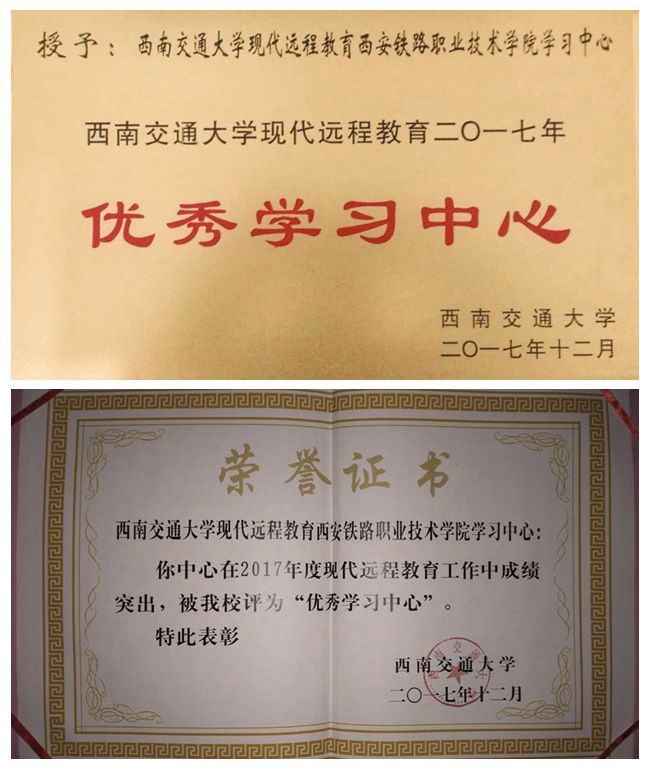 授予：西南交通大学现代远程教育西安铁路职业技术学院学习中心
西南交通大学现代远程教育二〇一七年
优秀学习中心
西南交通大学
二〇一七年十二月
荣誉证书
西南交通大学现代远程教育西安铁路职业技术学院学习中心：
你中心在2017年度现代远程教育工作中成绩
突出，被我校评为“优秀学习中心”。
特此表彰
西南交通大学
二〇一七年十二月